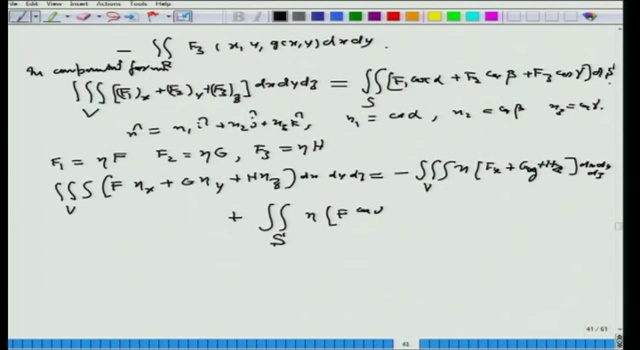 File Edit View Insert Actions Tools Help
− ∬_R F₃ (x, y, g(x,y)) dx dy.
In component form
∭_V [(F₁)_x + (F₂)_y + (F₃)_z] dx dy dz = ∬_S [F₁ cos α + F₂ cos β + F₃ cos γ] dS
n̂ = n₁ î + n₂ ĵ + n₃ k̂, n₁ = cos α, n₂ = cos β n₃ = cos γ.
F₁ = ηF F₂ = ηG, F₃ = ηH
∭_V (F η_x + G η_y + H η_z) dx dy dz = − ∭_V η [F_x + G_y + H_z] dx dy dz
+ ∬_S η [F cos
41 / 61
41